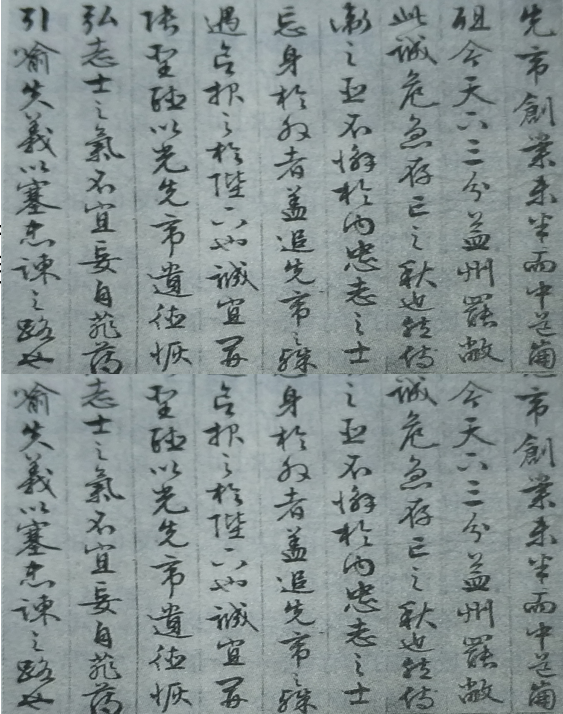 先帝創業未半而中道崩
殂今天下三分益州罷敝
此誠危急存亡之秋也然侍
衛之臣不懈於內忠志之士
忘身於外者蓋追先帝之殊
遇欲報之於陛下也誠宜開
張聖聽以光先帝遺德恢
弘志士之氣不宜妄自菲薄
引喻失義以塞忠諫之路也
帝創業未半而中道崩
今天下三分益州罷敝
誠危急存亡之秋也然侍
之臣不懈於內忠志之士
身於外者蓋追先帝之殊
欲報之於陛下也誠宜開
聖聽以光先帝遺德恢
志士之氣不宜妄自菲薄
喻失義以塞忠諫之路也